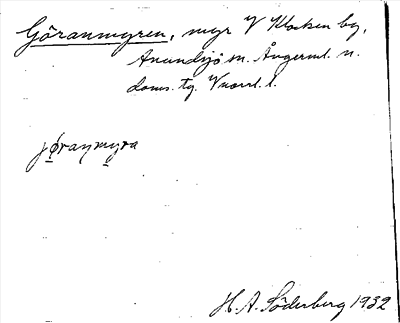 Göranmyren, myr V Klocken by,
Anundsjö sn. Ångerml. n.
doms. tg. Vnorrl. l.
jøraŋmyra
H. A. Söderberg 1932